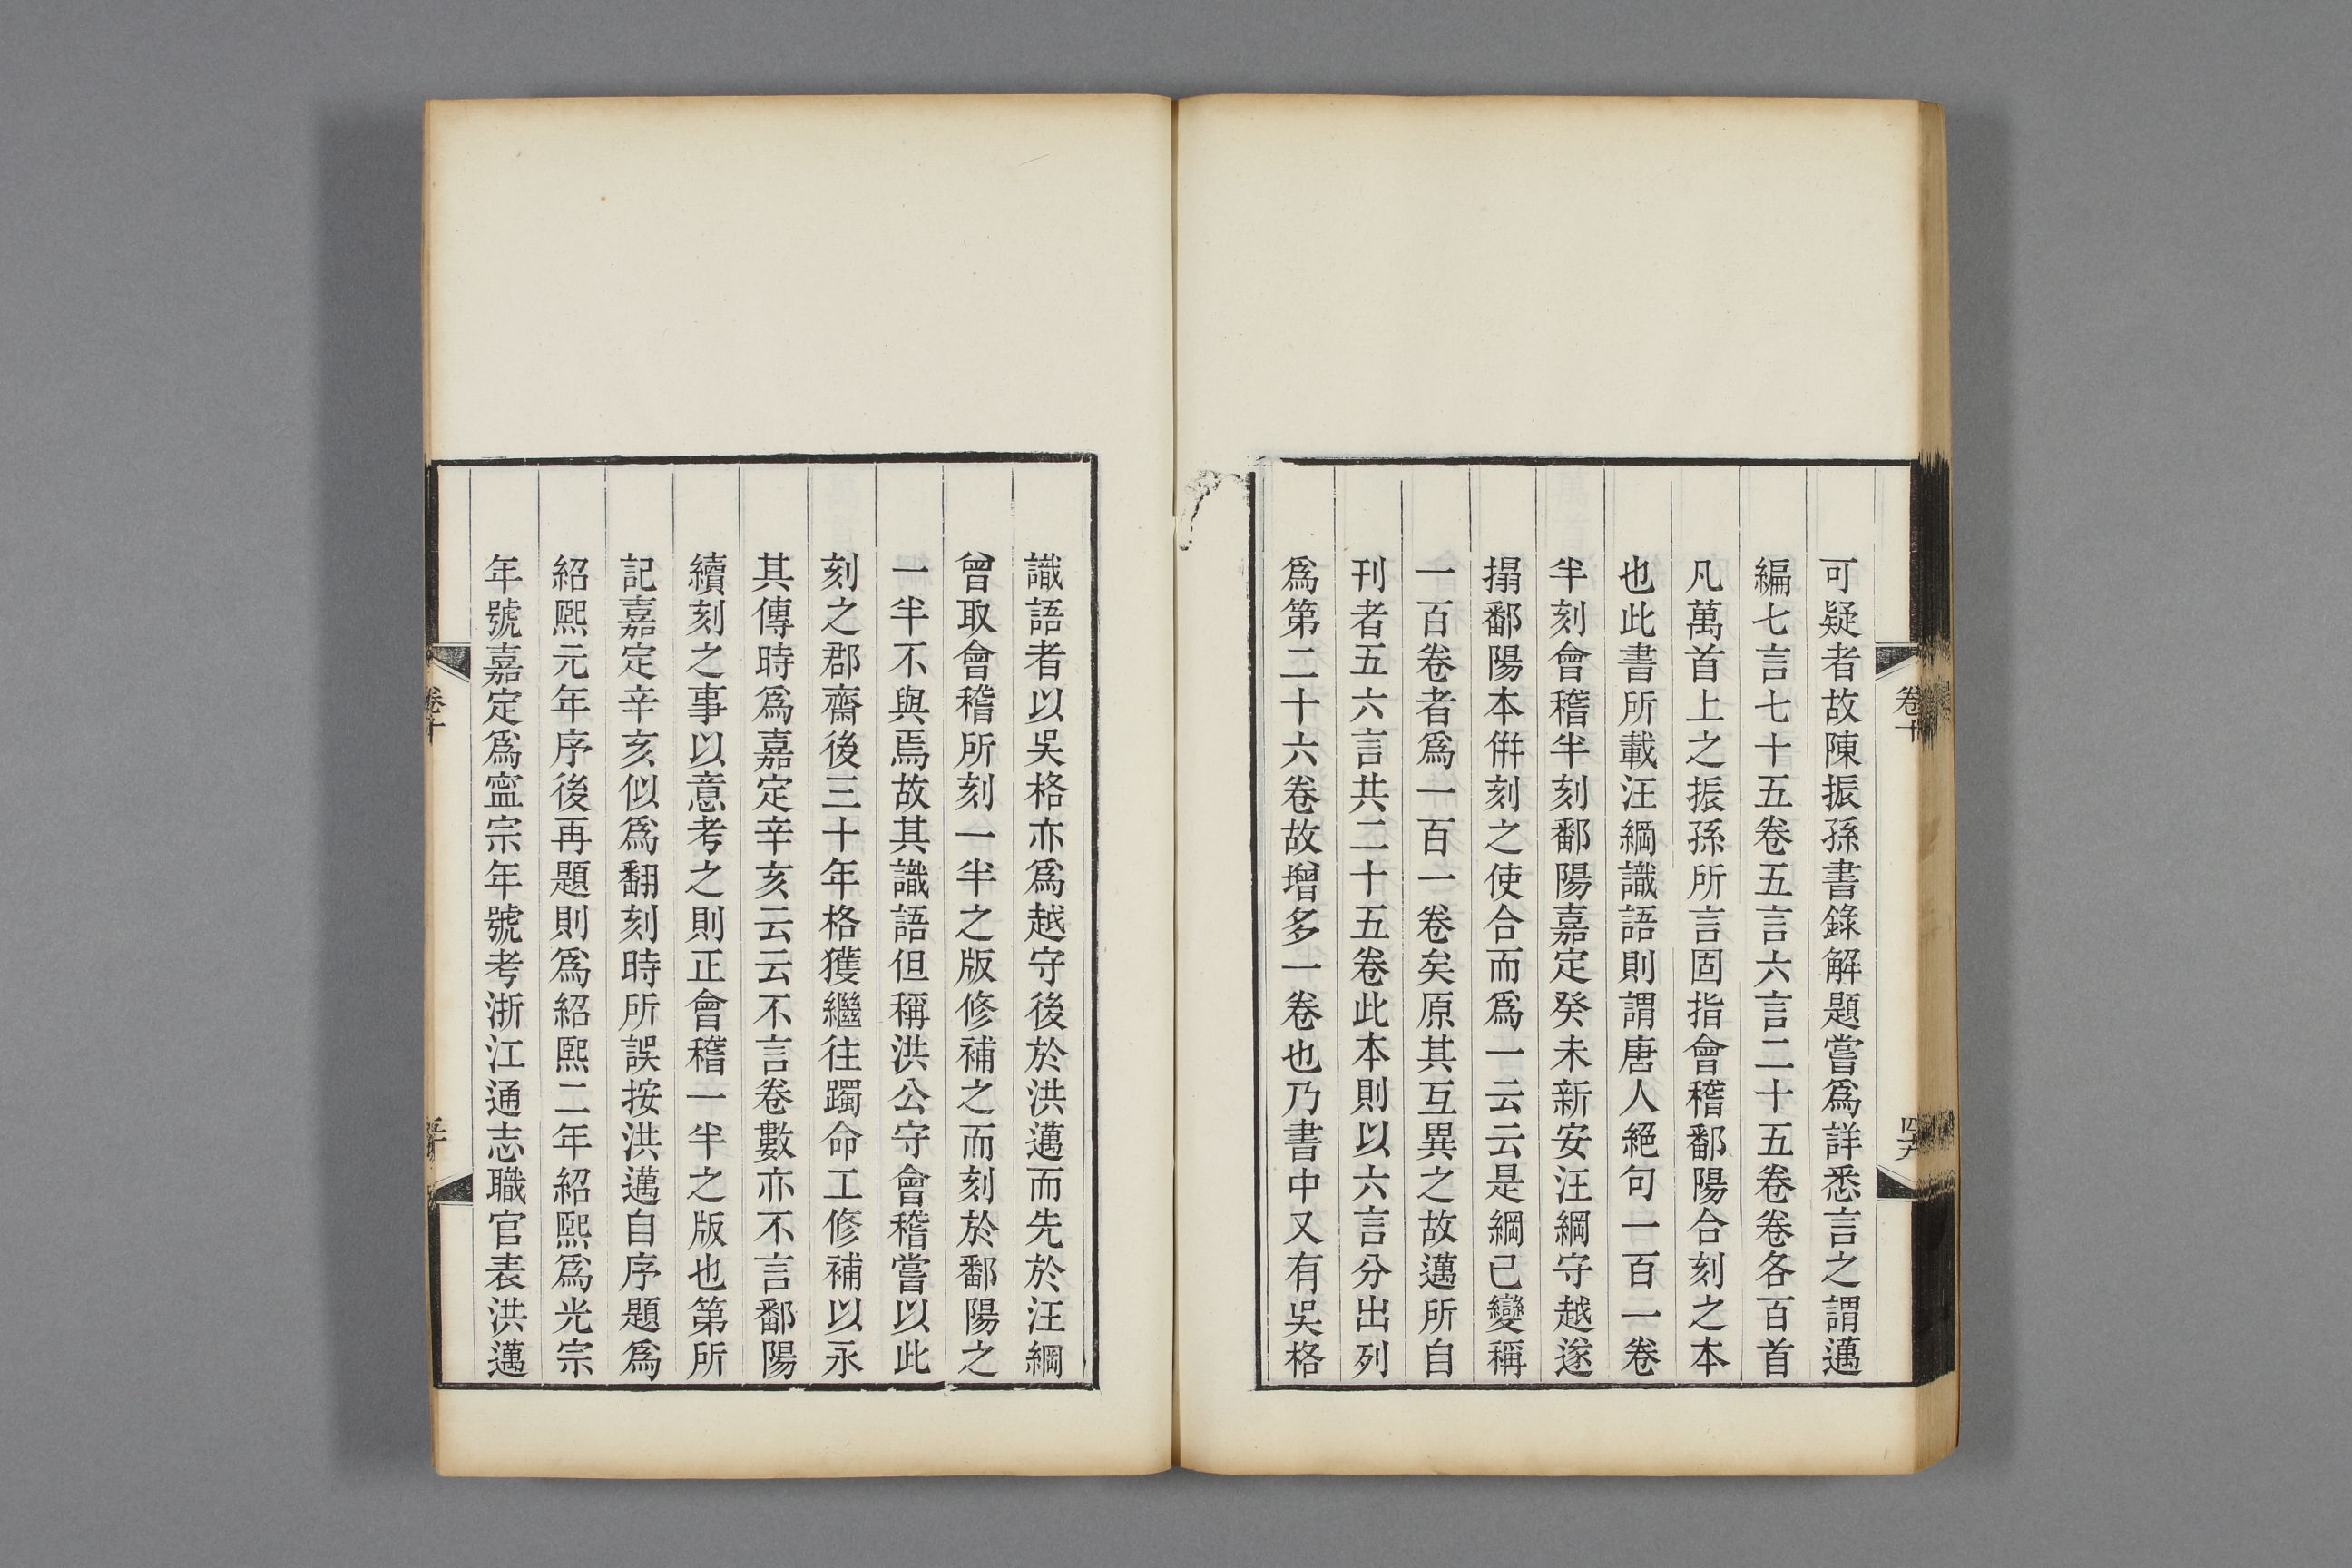 可疑者故陳振孫書錄解題嘗爲詳悉言之謂邁
編七言七十五卷五言六言二十五卷卷各百首
凡萬首上之振孫所言固指會稽鄱陽合刻之本
也此書所載汪綱識語則謂唐人絕句一百一卷
半刻會稽半刻鄱陽嘉定癸未新安汪綱守越遂
搨鄱陽本併刻之使合而爲一云云是綱己變稱
一百卷者爲一百一卷矣原其互異之故邁所自
刊者五六言共二十五卷此本則以六言分出列
爲第二十六卷故增多一卷也乃書中又有吳格
卷十
四九
識語者以吳格亦爲越守後於洪邁而先於汪綱
曾取會稽所刻一半之版修補之而刻於鄱陽之
一半不與焉故其識語但稱洪公守會稽嘗以此
刻之郡齋後三十年格獲繼往躅命工修補以永
其傳時爲嘉定辛亥云云不言卷數亦不言鄱陽
續刻之事以意考之則正會稽一半之版也第所
記嘉定辛亥似爲翻刻時所誤按洪邁自序題爲
紹熙元年序後再題則爲紹熙二年紹熙爲光宗
年號嘉定爲寍宗年號考浙江通志職官表洪邁
卷十